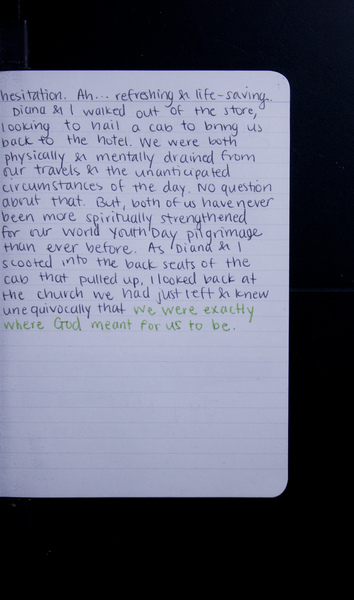 hesitation. Ah... refreshing & life-saving.
Diana & I walked out of the store,
looking to hail a cab to bring us
back to the hotel. We were both
physically & mentally drained from
our travels & the unanticipated
circumstances of the day. No question
about that. But, both of us have never
been more spiritually strengthened
for our World Youth Day pilgrimage
than ever before. As Diana & I
scooted into the back seats of the
cab that pulled up, I looked back at
the church we had just left & knew
unequivocally that we were exactly
where God meant for us to be.